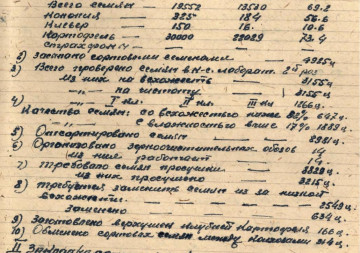 Всего семян — 19552 13530 69.2
Конопля — 325 184 56.6
Клевер — 150 16. 10.6
Картофель — 30000 22029 73.4
страхфонд —
2) засыпано сортовыми семенами —
3) Всего проверено семян в к-с. лаборат. 2ой раз
из них на всхожесть — 3155 ц
—„— на чистоту — 3155 ц
4) —„— I кл. II кл. III кл. 1866 ц.
Качества семян со всхожестью ниже 647 ц.
с влажностью выше 17%
5) Отсортировано семян — 8981 ц.
6) Организовано зерноочистительных обозов 14
из них работает — 14
7) Требовало семян просушки — 3328 ц.
из них просушено — 3215 ц.
8) Требуется заменить семян из за низкой
всхожести — 2549 ц.
Заменено — 694 ц.
9) Заготовлено верхушек клубней картофеля 166 ц.
10) Обменено сортовых семян между колхозами 214 ц.
II